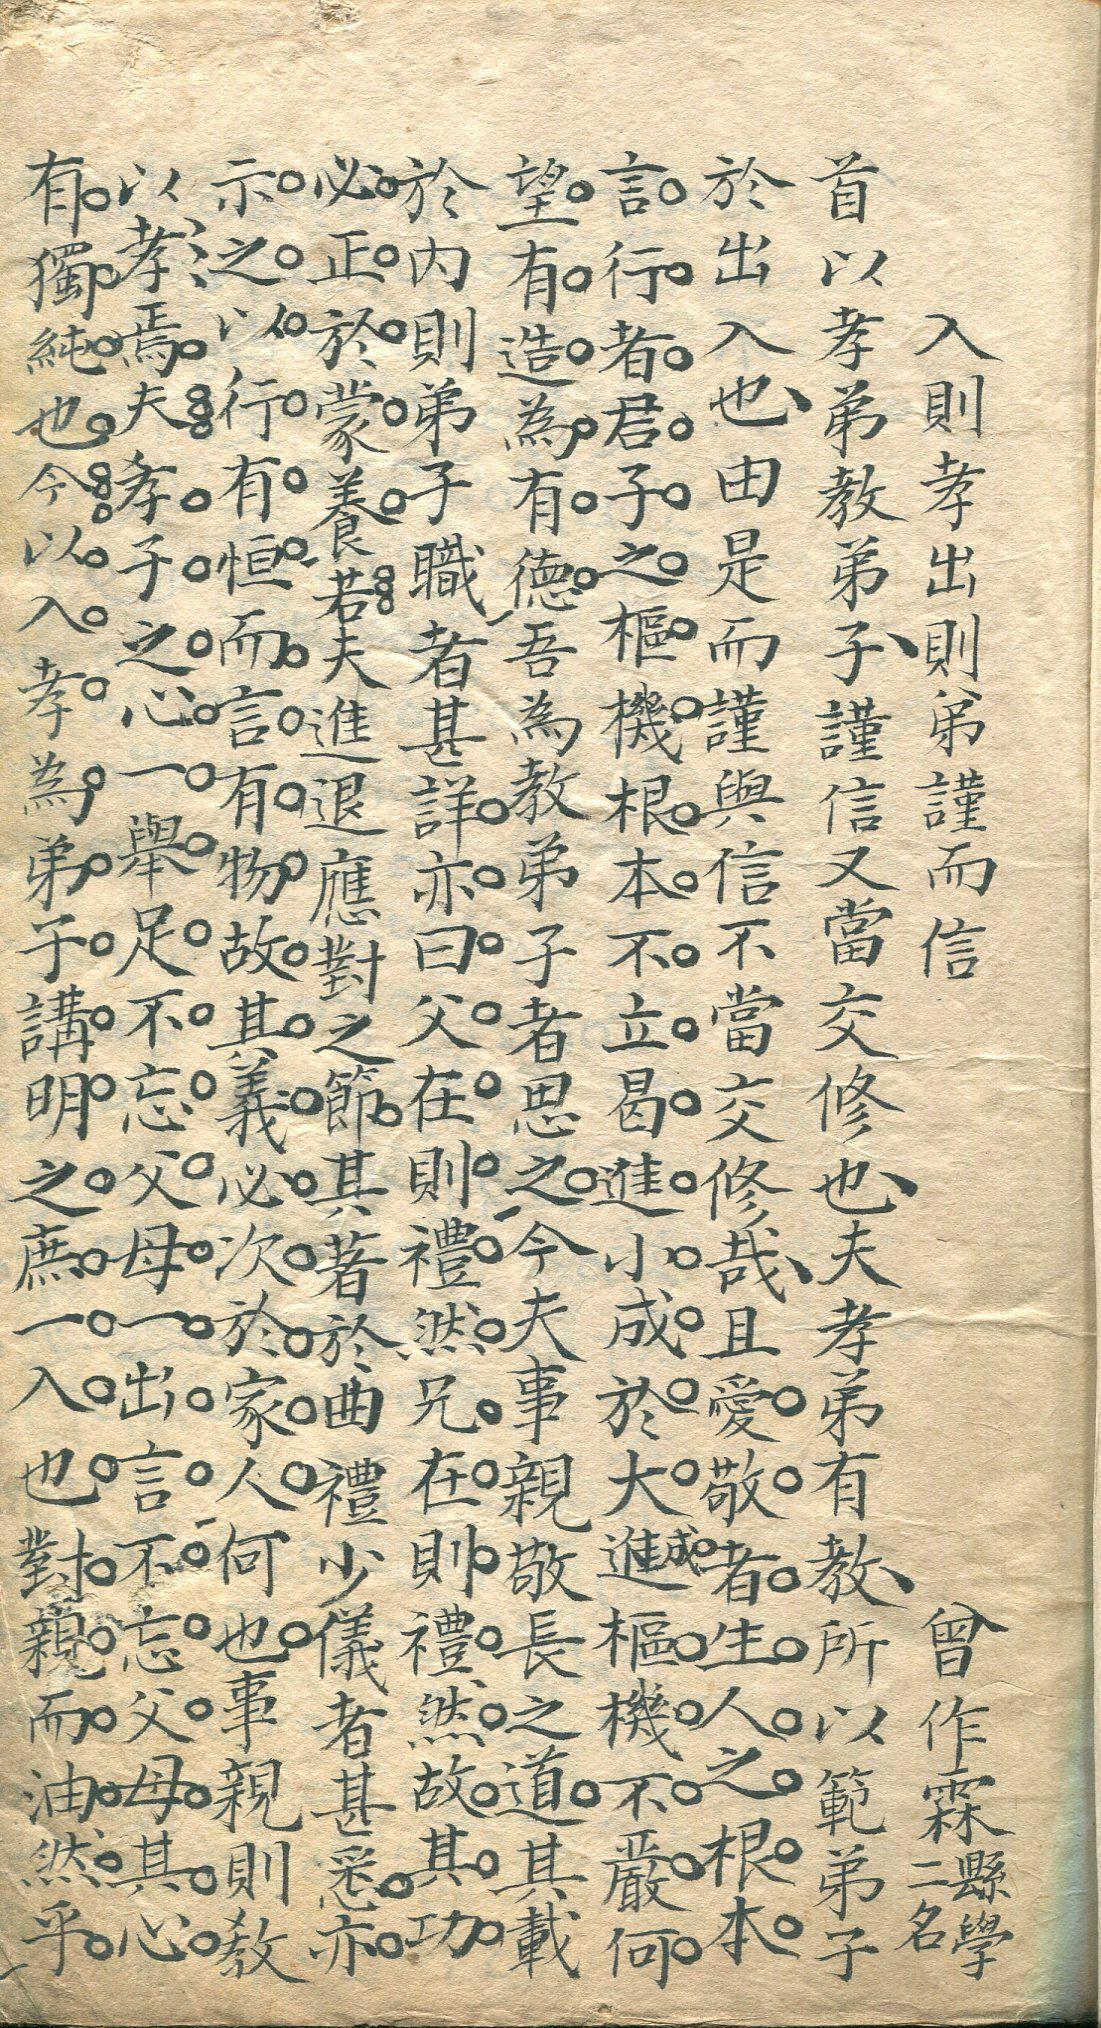 入則孝出則弟謹而信　曾作霖縣學二名
首以孝弟教弟子謹信又當交修也夫孝弟有教所以範弟子
於出入也由是而謹與信不當交修哉且愛敬者生人之根本
言行者君子之樞機根本不立曷進小成於大進成樞機不嚴何
望有造為有德吾為教弟子者思之今夫事親敬長之道其載
於內則弟子職者甚詳亦曰父在則禮然兄在則禮然故其功
必正於蒙養若夫進退應對之節其著於曲禮少儀者甚悉亦
示之以行有恒而言有物故其義必次於家人何也事親則教
以孝焉夫孝子之心一舉足不忘父母一出言不忘父母其心
有獨純也今以入孝為弟子講明之庶一入也對親而油然乎